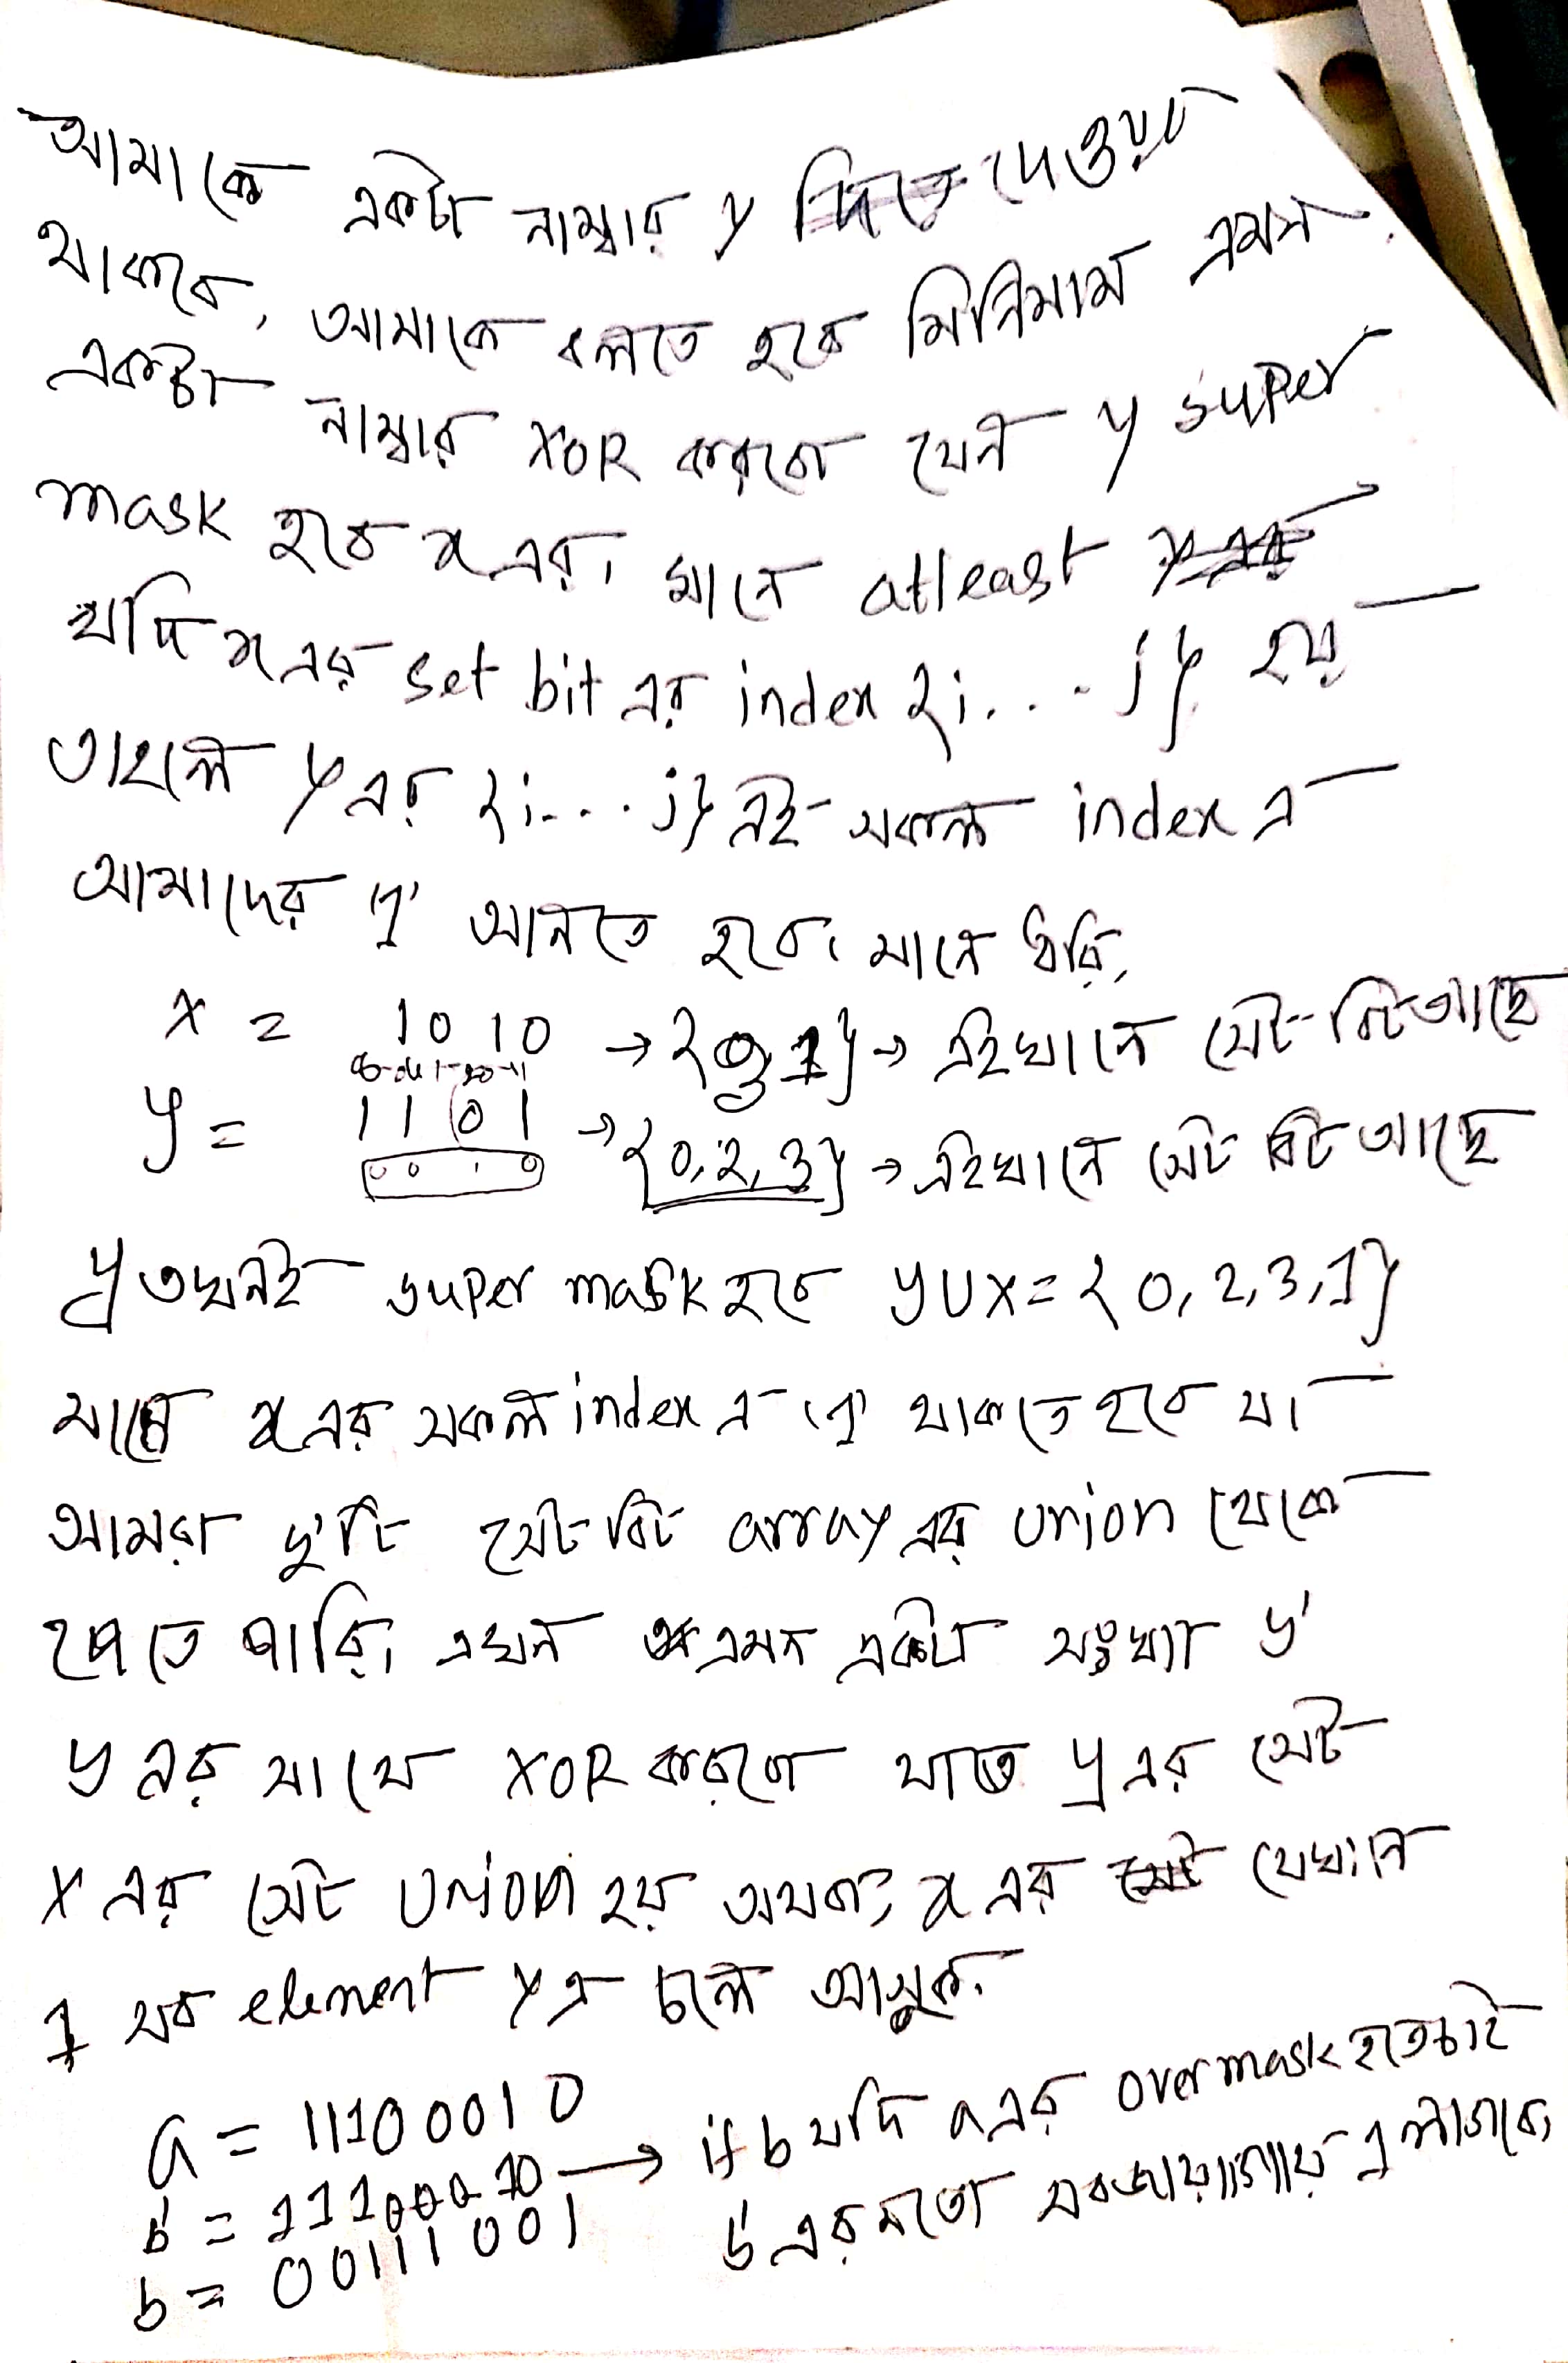 আমাকে একটা নাম্বার y দেওয়া
থাকবে, আমাকে বলতে হবে মিনিমাম এমন
একটা নাম্বার XOR করবো যেন y super
mask হবে x এর। মানে atleast
যদি x এর set bit এর index {i... j} হয়
তাহলে y এর {i... j} এই সকল index এ
আমাদের '1' আনতে হবে। মানে ধরি,
x = 1010 → {3, 1} → এইখানে সেট বিট আছে
y = 1101 → {0, 2, 3} → এইখানে সেট বিট আছে
y তখনই super mask হবে y U x = {0, 2, 3, 1}
মানে x এর সকল index এ '1' থাকতে হবে যা
আমরা দু'টি সেট বিট array এর union থেকে
পেতে পারি। এখন এমন একটা সংখ্যা y'
y এর সাথে XOR করবো যাতে y এর সেট
x এর সেট union হয় অথবা, x এর যেখানে
1 সব element y এ চলে আসুক.
a = 11100010
b' = 11100010 → if b যদি a এর over mask হতে চাই
b = 00111001 b' এর মতো সব জায়গায় 1 লাগবে